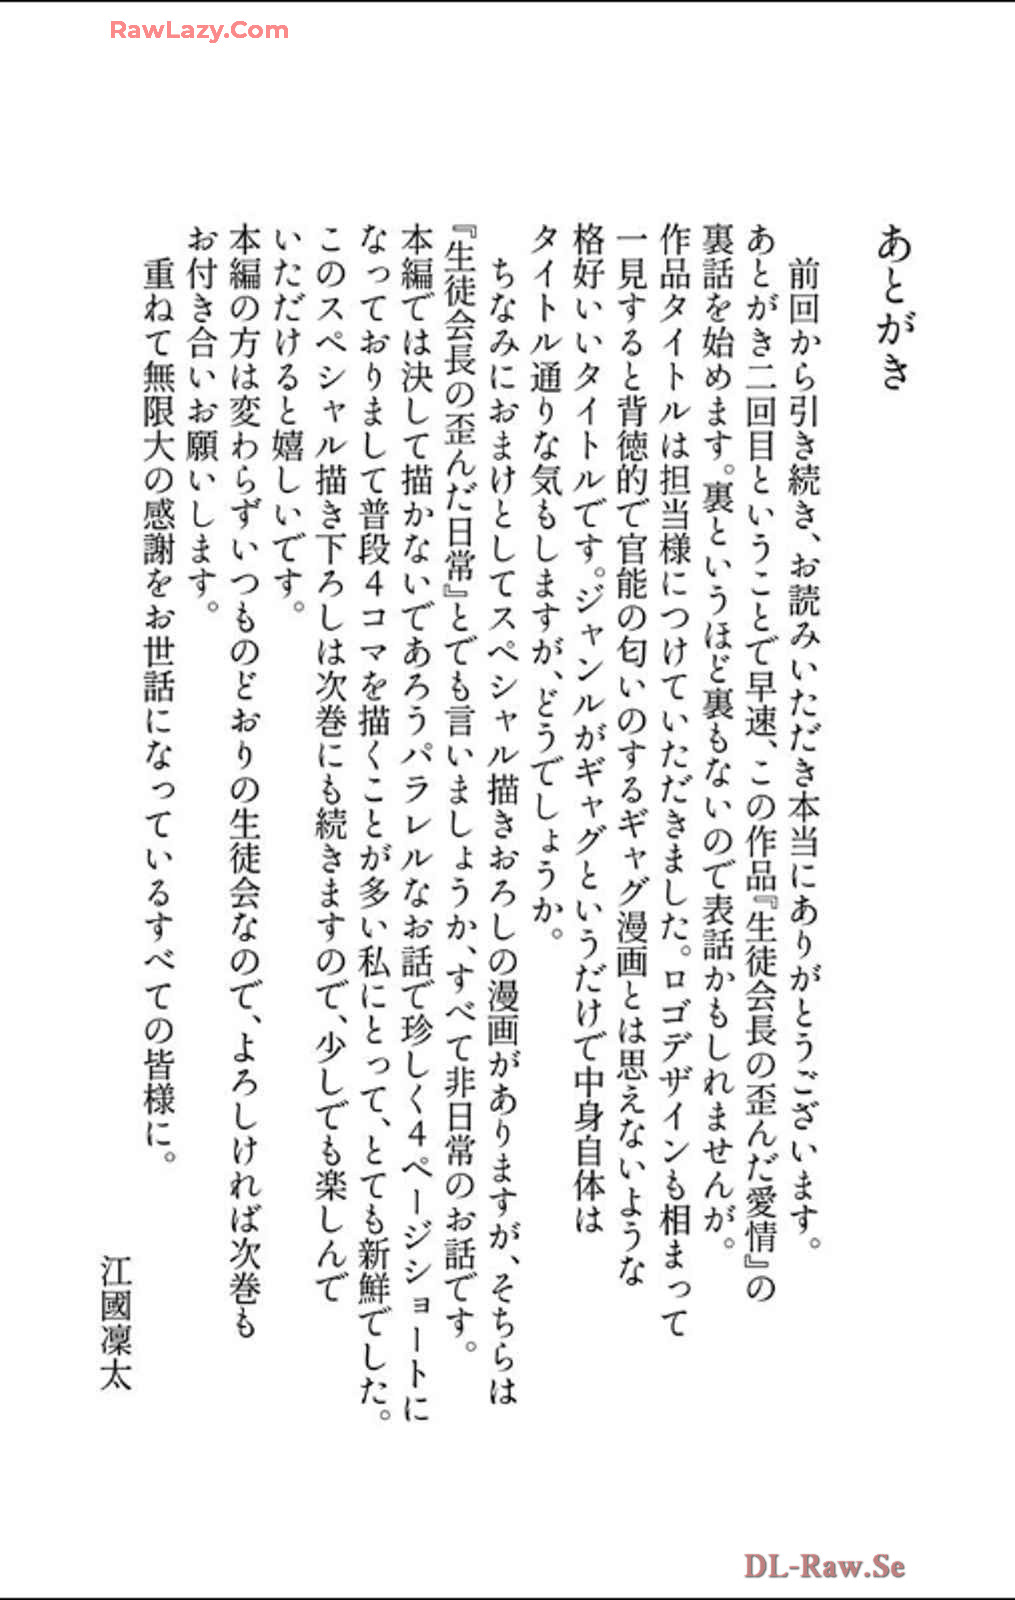 RawLazy.Com
あとがき
前回から引き続き、お読みいただき本当にありがとうございます。
あとがき二回目ということで早速、この作品『生徒会長の歪んだ愛情』の
裏話を始めます。裏というほど裏もないので表話かもしれませんが。
作品タイトルは担当様につけていただきました。ロゴデザインも相まって
一見すると背徳的で官能の匂いのするギャグ漫画とは思えないような
格好いいタイトルです。ジャンルがギャグというだけで中身自体は
タイトル通りな気もしますが、どうでしょうか。
ちなみにおまけとしてスペシャル描きおろしの漫画がありますが、そちらは
『生徒会長の歪んだ日常』とでも言いましょうか、すべて非日常のお話です。
本編では決して描かないであろうパラレルなお話で珍しく4ページショートに
なっておりまして普段4コマを描くことが多い私にとって、とても新鮮でした。
このスペシャル描き下ろしは次巻にも続きますので、少しでも楽しんで
いただけると嬉しいです。
本編の方は変わらずいつものどおりの生徒会なので、よろしければ次巻も
お付き合いお願いします。
重ねて無限大の感謝をお世話になっているすべての皆様に。
江國凜太
DL-Raw.Se